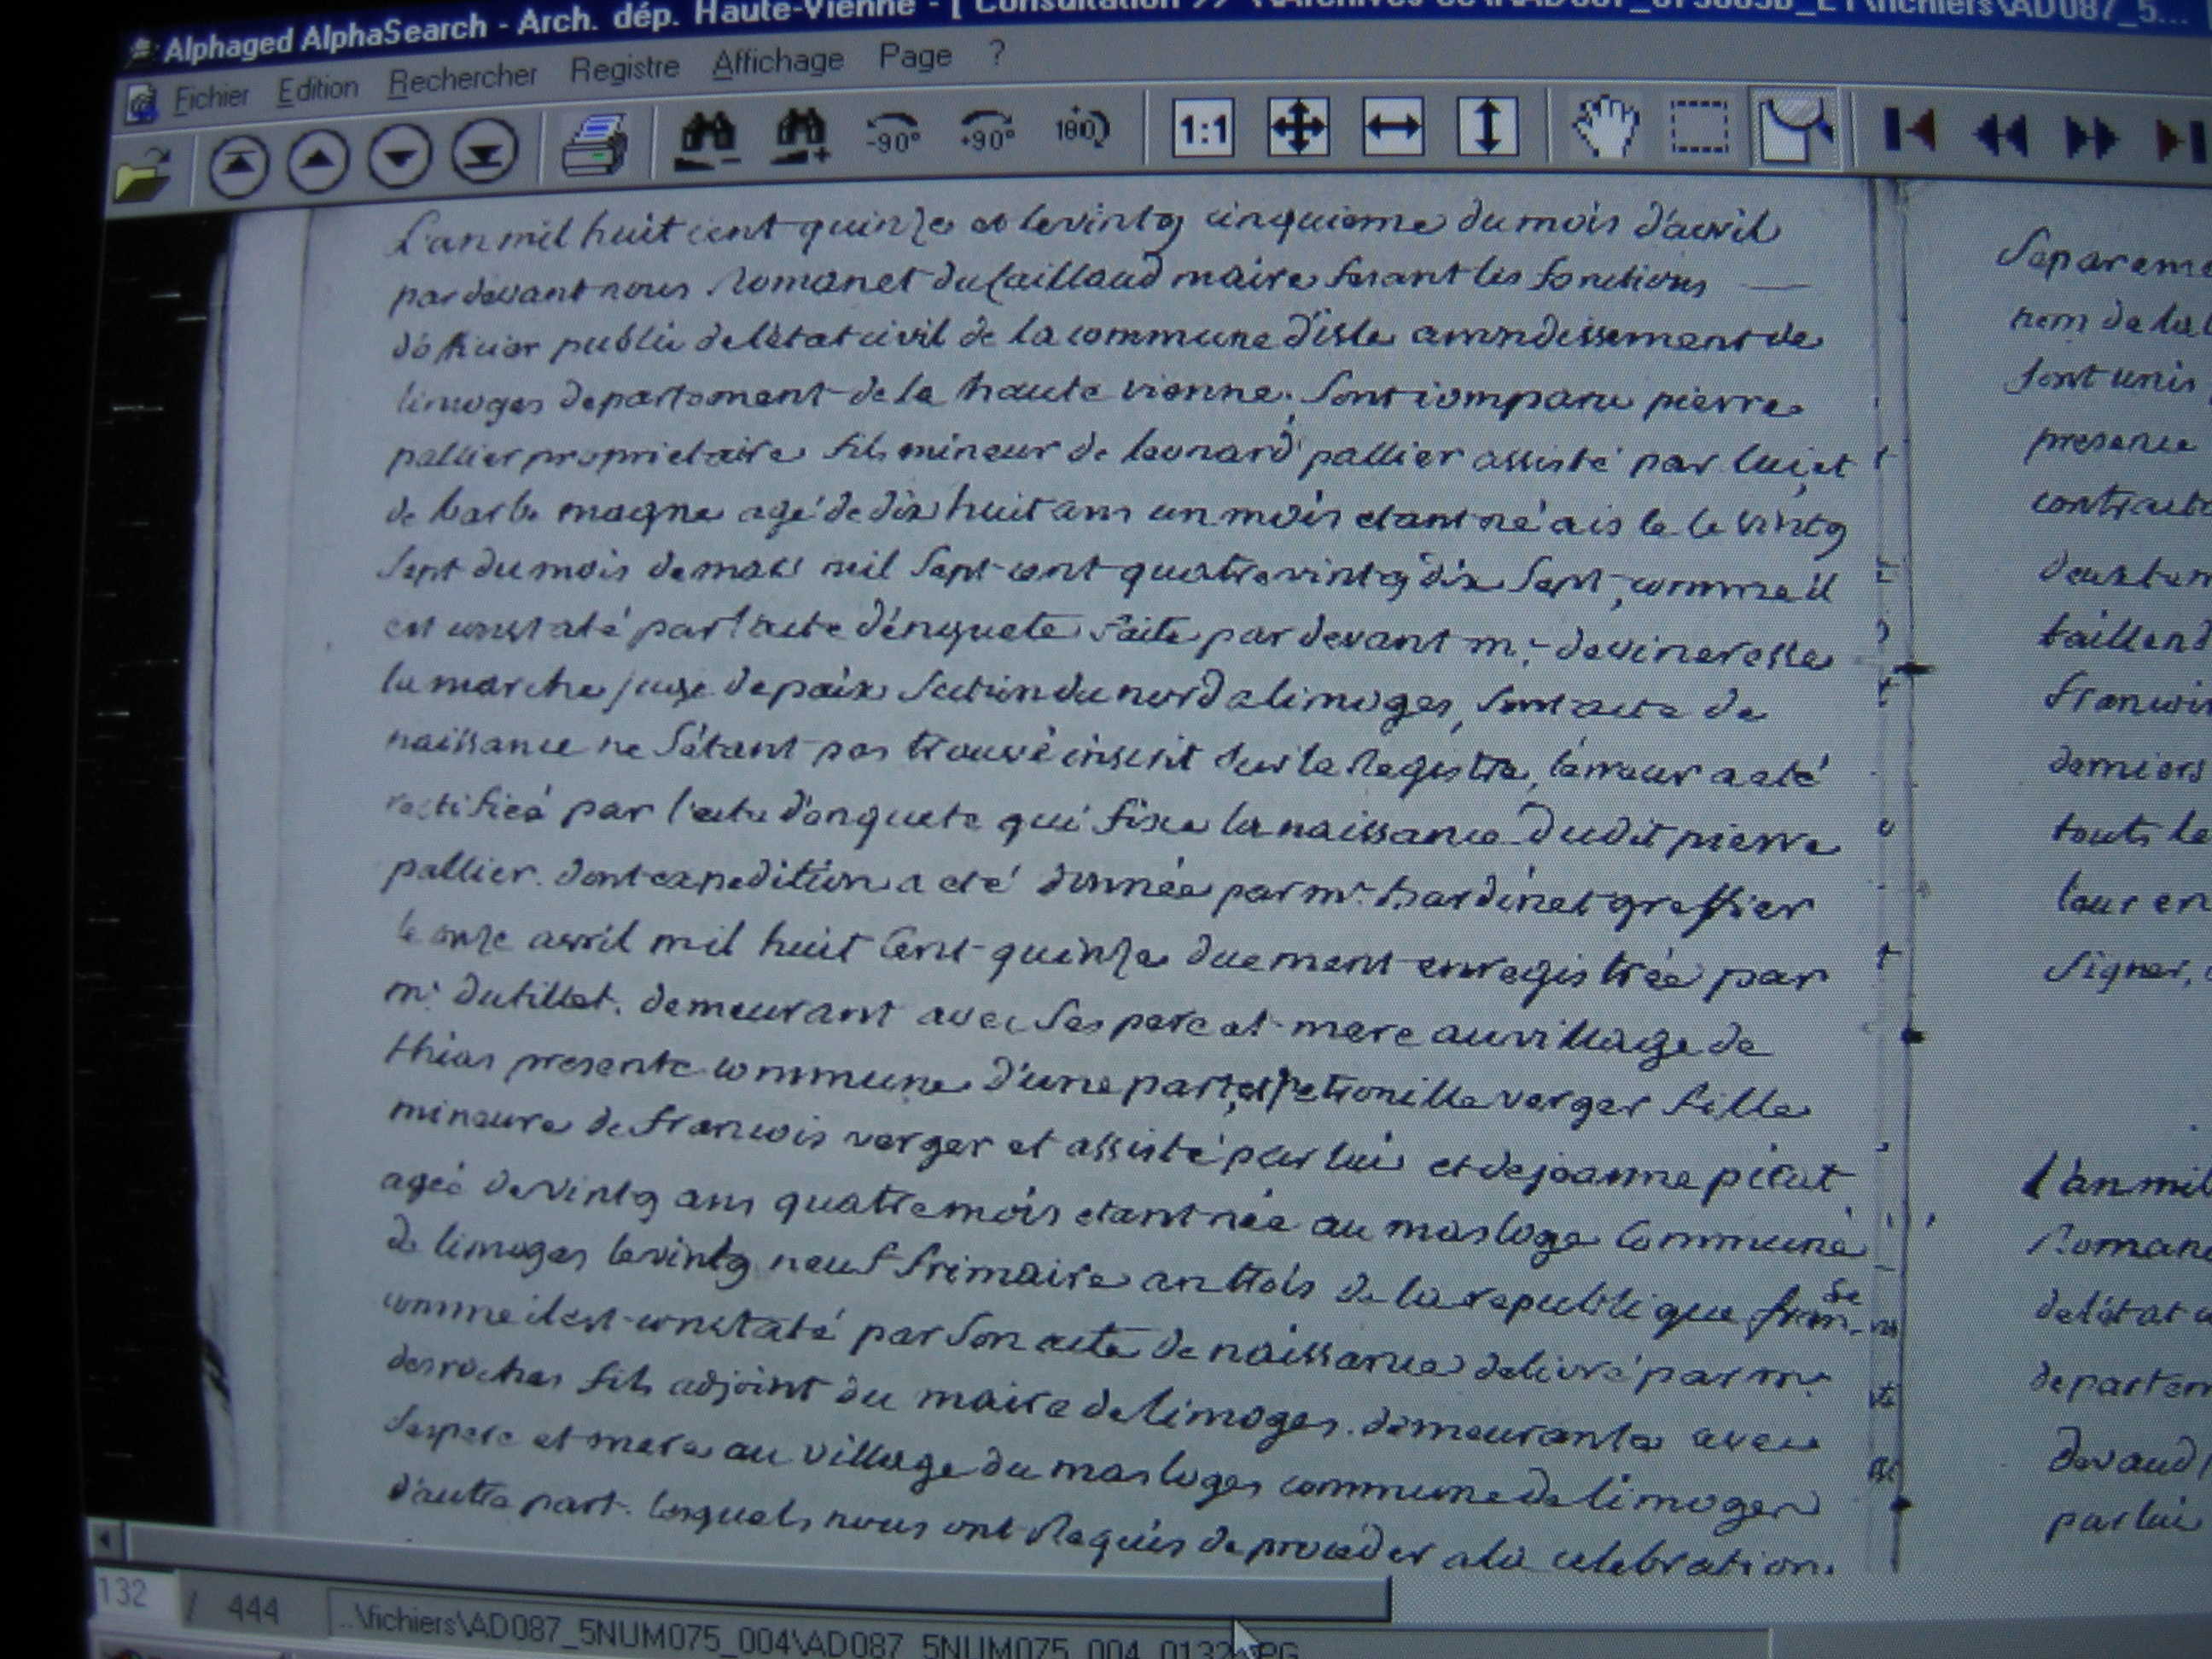 Alphaged AlphaSearch - Arch. dép. Haute-Vienne - [ Consultation
Fichier Edition Rechercher Registre Affichage Page ?
-90° +90° 180 1:1
L'an mil huit cent quinze et le vintg cinquieme du mois d'avril
par devant nous Romanet du Caillaud maire fesant les fonctions
d'officier public de l'état civil de la commune d'isle arrondissement de
limoges departement de la haute vienne. Sont comparu pierre
pallier proprietaire fils mineur de leonard pallier assisté par lui, et
de barbe magne agé de dix huit ans un mois etant né a isle le vintg
sept du mois de mars mil sept cent quatre vintg dix sept, comme il
est constaté par l'acte d'enquete faite par devant mr. devineresse
lamarche juge de paix section du nord a limoges, sont acte de
naissance ne s'étant pas trouvé inscrit sur le Registre, l'erreur a eté
rectifieé par l'acte d'enquete qui fixe la naissance dudit pierre
pallier. dont expedition a eté donnée par mr. bardinet greffier
le onze avril mil huit Cent quinze duement enregistrée par
mr. dutillet. demeurant avec ses pere et mere au village de
thias presente commune d'une part, et petronille verger fille
mineure de francois verger et assisté par lui et de jeanne picat
ageé de vintg ans quatre mois etant née au mas loge Commune
de limoges le vintg neuf frimaire an trois de la republique franse
comme il est constaté par son acte de naissance delivré par mr.
desroches fils adjoint du maire de limoges. demeurante avec
ses pere et mere au village du mas loges commune de limoges
d'autre part. lesquels nous ont Requis de proceder a la celebration
Separeme
nom de la l
sont unis
presence
contracte
deux ten
taillend
francois
derniers
touts le
leur en
signer,
L'an mil
Romane
de l'état c
departem
devaud
par lui
132 / 444 ..\fichiers\AD087_5NUM075_004\AD087_5NUM075_004_0132.JPG